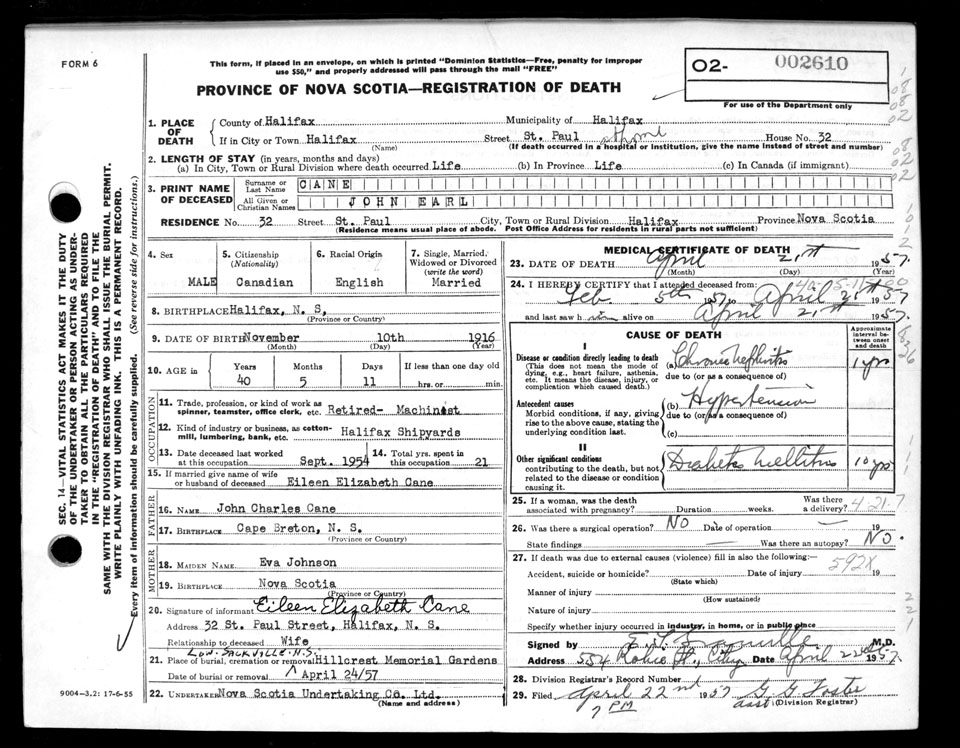 FORM 6
This form, if placed in an envelope, on which is printed "Dominion Statistics—Free, penalty for improper
use $50," and properly addressed will pass through the mail "FREE"
PROVINCE OF NOVA SCOTIA—REGISTRATION OF DEATH
O2- 002610
For use of the Department only
1. PLACE OF DEATH
County of Halifax Municipality of Halifax
If in City or Town Halifax Street St. Paul at home House No. 32
(Name) (If death occurred in a hospital or institution, give the name instead of street and number)
2. LENGTH OF STAY (in years, months and days)
(a) In City, Town or Rural Division where death occurred Life (b) In Province Life (c) In Canada (if immigrant)
3. PRINT NAME OF DECEASED
Surname or Last Name CANE
All Given or Christian Names JOHN EARL
RESIDENCE No. 32 Street St. Paul City, Town or Rural Division Halifax Province Nova Scotia
(Residence means usual place of abode. Post Office Address for residents in rural parts not sufficient)
SEC. 14—VITAL STATISTICS ACT MAKES IT THE DUTY
OF THE UNDERTAKER OR PERSON ACTING AS UNDER-
TAKER TO OBTAIN ALL THE PARTICULARS REQUIRED
IN THE "REGISTRATION OF DEATH" AND TO FILE THE
SAME WITH THE DIVISION REGISTRAR WHO SHALL ISSUE THE BURIAL PERMIT.
WRITE PLAINLY WITH UNFADING INK. THIS IS A PERMANENT RECORD.
Every item of information should be carefully supplied. (See reverse side for instructions.)
4. Sex MALE
5. Citizenship (Nationality) Canadian
6. Racial Origin English
7. Single, Married, Widowed or Divorced (write the word) Married
8. BIRTHPLACE Halifax, N. S.
(Province or Country)
9. DATE OF BIRTH November 10th 1916
(Month) (Day) (Year)
10. AGE in Years Months Days If less than one day old
40 5 11 hrs. or min.
OCCUPATION
11. Trade, profession, or kind of work as
spinner, teamster, office clerk, etc. Retired- Machinist
12. Kind of industry or business, as cotton-
mill, lumbering, bank, etc. Halifax Shipyards
13. Date deceased last worked at this occupation Sept. 1954
14. Total yrs. spent in this occupation 21
15. If married give name of wife
or husband of deceased Eileen Elizabeth Cane
FATHER
16. NAME John Charles Cane
17. BIRTHPLACE Cape Breton, N. S.
(Province or Country)
MOTHER
18. MAIDEN NAME Eva Johnson
19. BIRTHPLACE Nova Scotia
(Province or Country)
20. Signature of informant Eileen Elizabeth Cane
Address 32 St. Paul Street, Halifax, N. S.
Relationship to deceased Wife
LOW. SACKVILLE N.S.
21. Place of burial, cremation or removal Hillcrest Memorial Gardens
Date of burial or removal April 24/57
22. UNDERTAKER Nova Scotia Undertaking Co. Ltd.
(Name and address)
9004-3.2: 17-6-55
MEDICAL CERTIFICATE OF DEATH
23. DATE OF DEATH April 21st 1957.
(Month) (Day) (Year)
24. I HEREBY CERTIFY that I attended deceased from:
Feb 5th 1957 to April 21st 1957
and last saw him alive on April 21st 1957.
CAUSE OF DEATH
Approximate interval between onset and death
I
Disease or condition directly leading to death
(This does not mean the mode of
dying, e.g., heart failure, asthenia,
etc. It means the disease, injury, or
complication which caused death.)
(a) Chronic Nephritis 1 yrs
due to (or as a consequence of)
Antecedent causes
Morbid conditions, if any, giving
rise to the above cause, stating the
underlying condition last.
(b) Hypertension
due to (or as a consequence of)
(c)
II
Other significant conditions
contributing to the death, but not
related to the disease or condition
causing it.
Diabetes Mellitus 10 yrs
25. If a woman, was the death Was there
associated with pregnancy? Duration weeks. a delivery? 4-21-7
26. Was there a surgical operation? NO Date of operation — 19
State findings — Was there an autopsy? NO.
27. If death was due to external causes (violence) fill in also the following:—
592X
Accident, suicide or homicide? Date of injury 19
(State which)
Manner of injury
(How sustained)
Nature of injury
Specify whether injury occurred in industry, in home, or in public place
Signed by M.D.
Address 554 Robie St., City Date April 22nd 1957.
28. Division Registrar's Record Number
29. Filed April 22nd 1957 G G Foster
7 PM asst (Division Registrar)